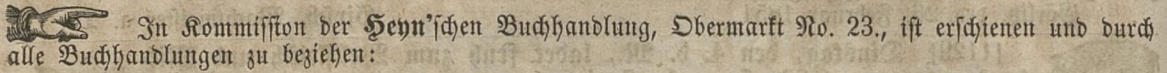 In Kommission der Heyn'schen Buchhandlung, Obermarkt No. 23., ist erschienen und durch
alle Buchhandlungen zu beziehen: